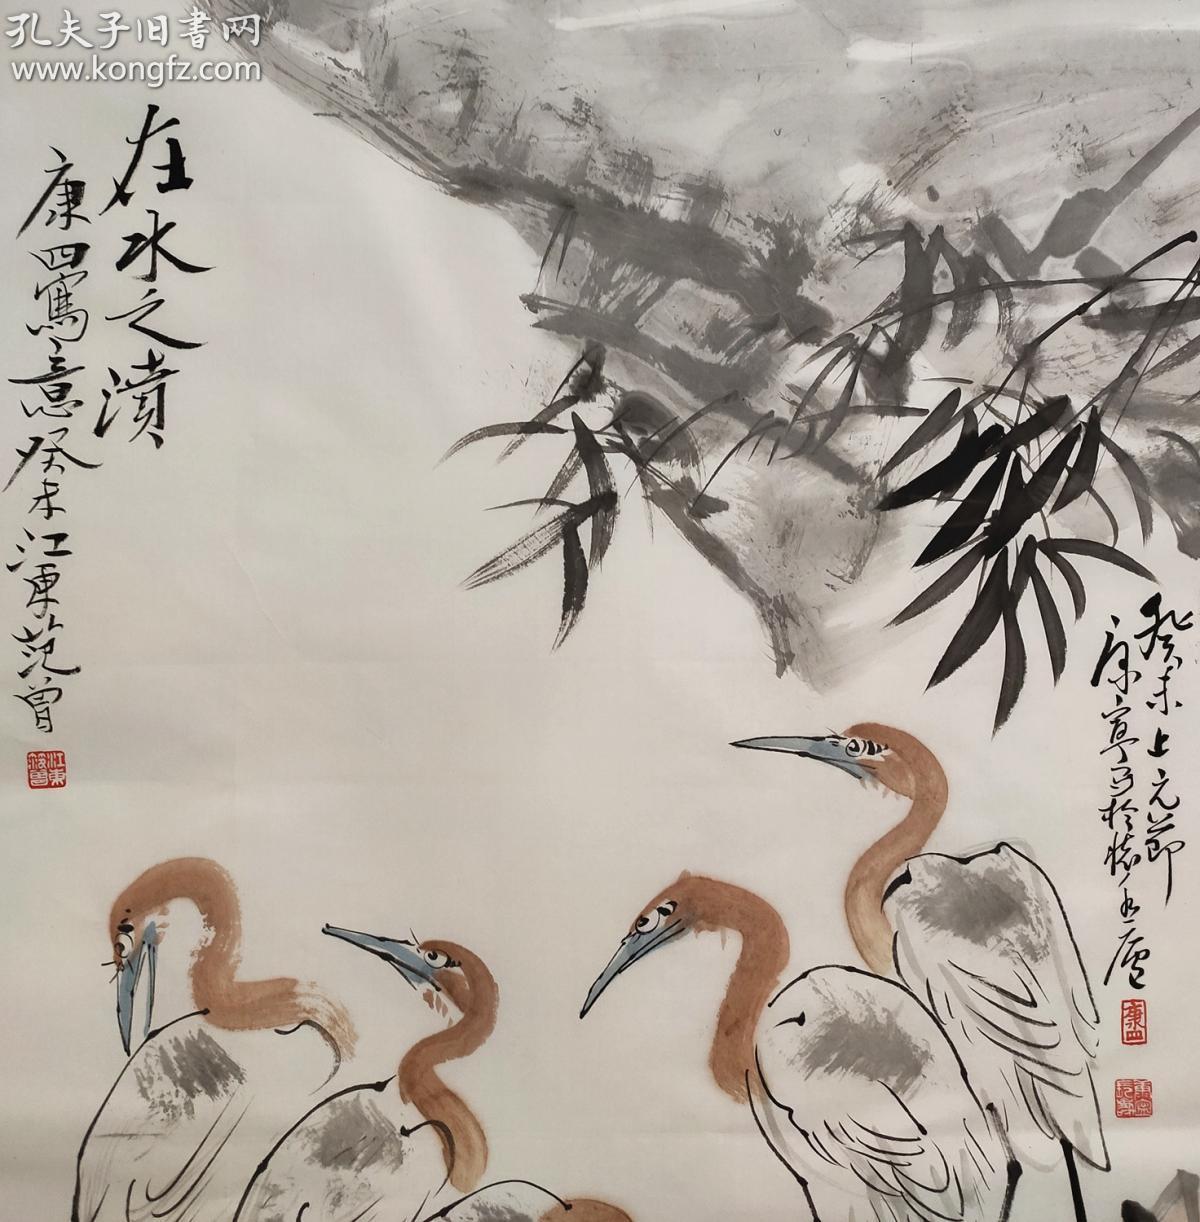 孔夫子旧書网
www.kongfz.com
在水之濆
康四寫意癸未江東范曾
江東范曾
癸未上元節
康寧写於懷玉廬
康四